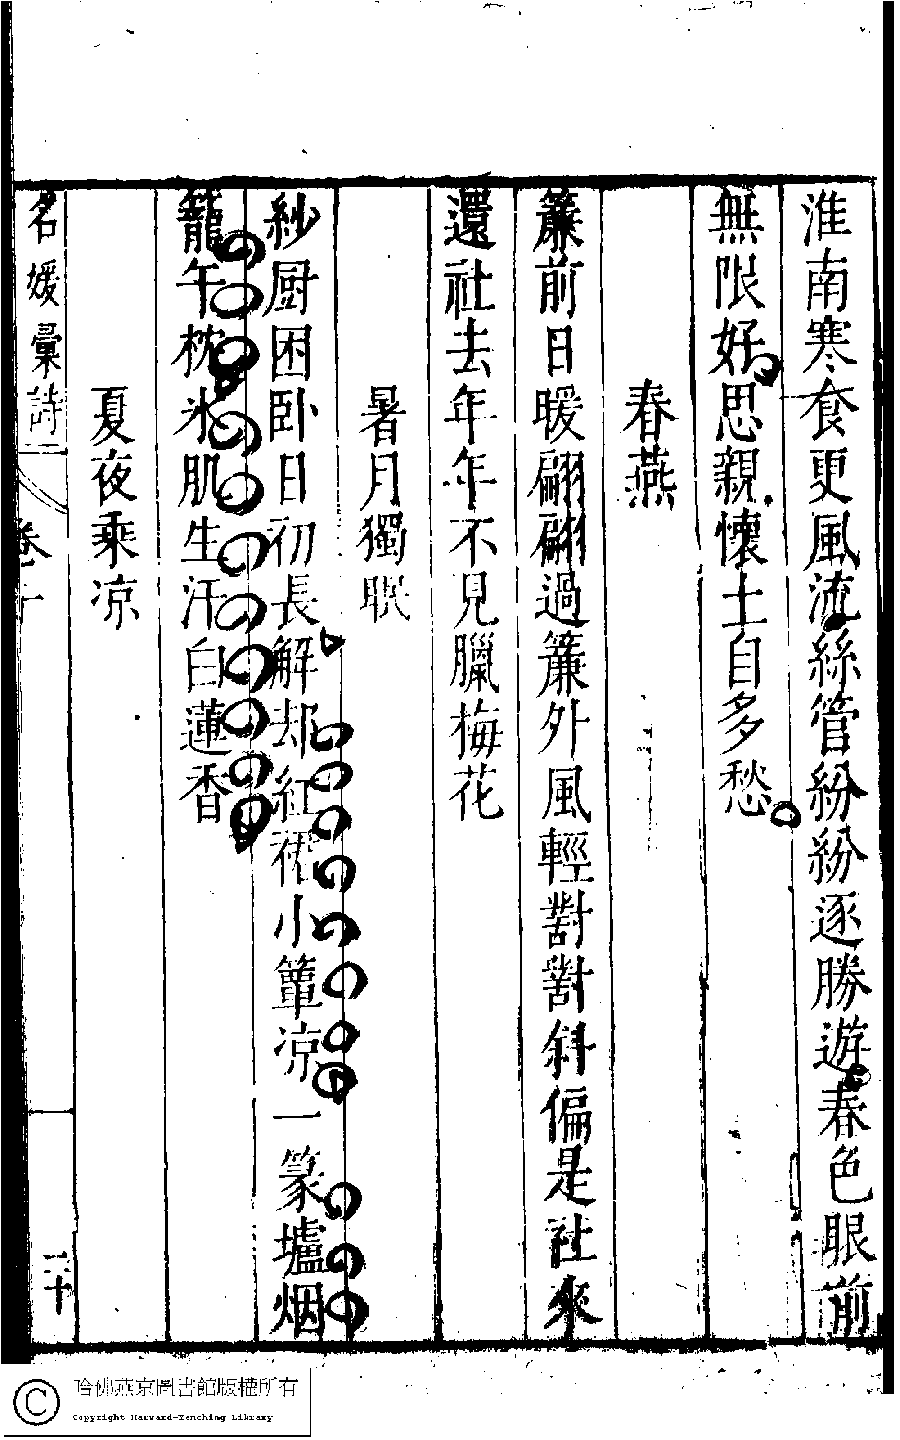 淮南寒食更風流絲管紛紛逐勝遊春色眼前
無限好思親懷土自多愁
春燕
簾前日暖翩翩過簾外風輕對對斜偏是社來
還社去年年不見臘梅花
暑月獨眠
紗厨困卧日初長解却紅裙小簟凉一篆壚烟
籠午枕氷肌生汗白蓮香
夏夜乘凉
名媛彙詩
卷十
二十
哈佛燕京圖書館版權所有
Copyright Harvard-Yenching Library